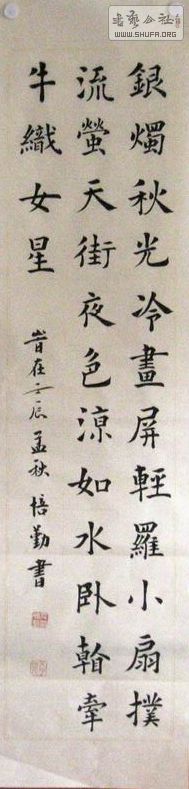 WWW.SHUFA.ORG
銀燭秋光冷畫屏輕羅小扇撲
流螢天街夜色涼如水卧看牽
牛織女星
旹在壬辰孟秋培勤書